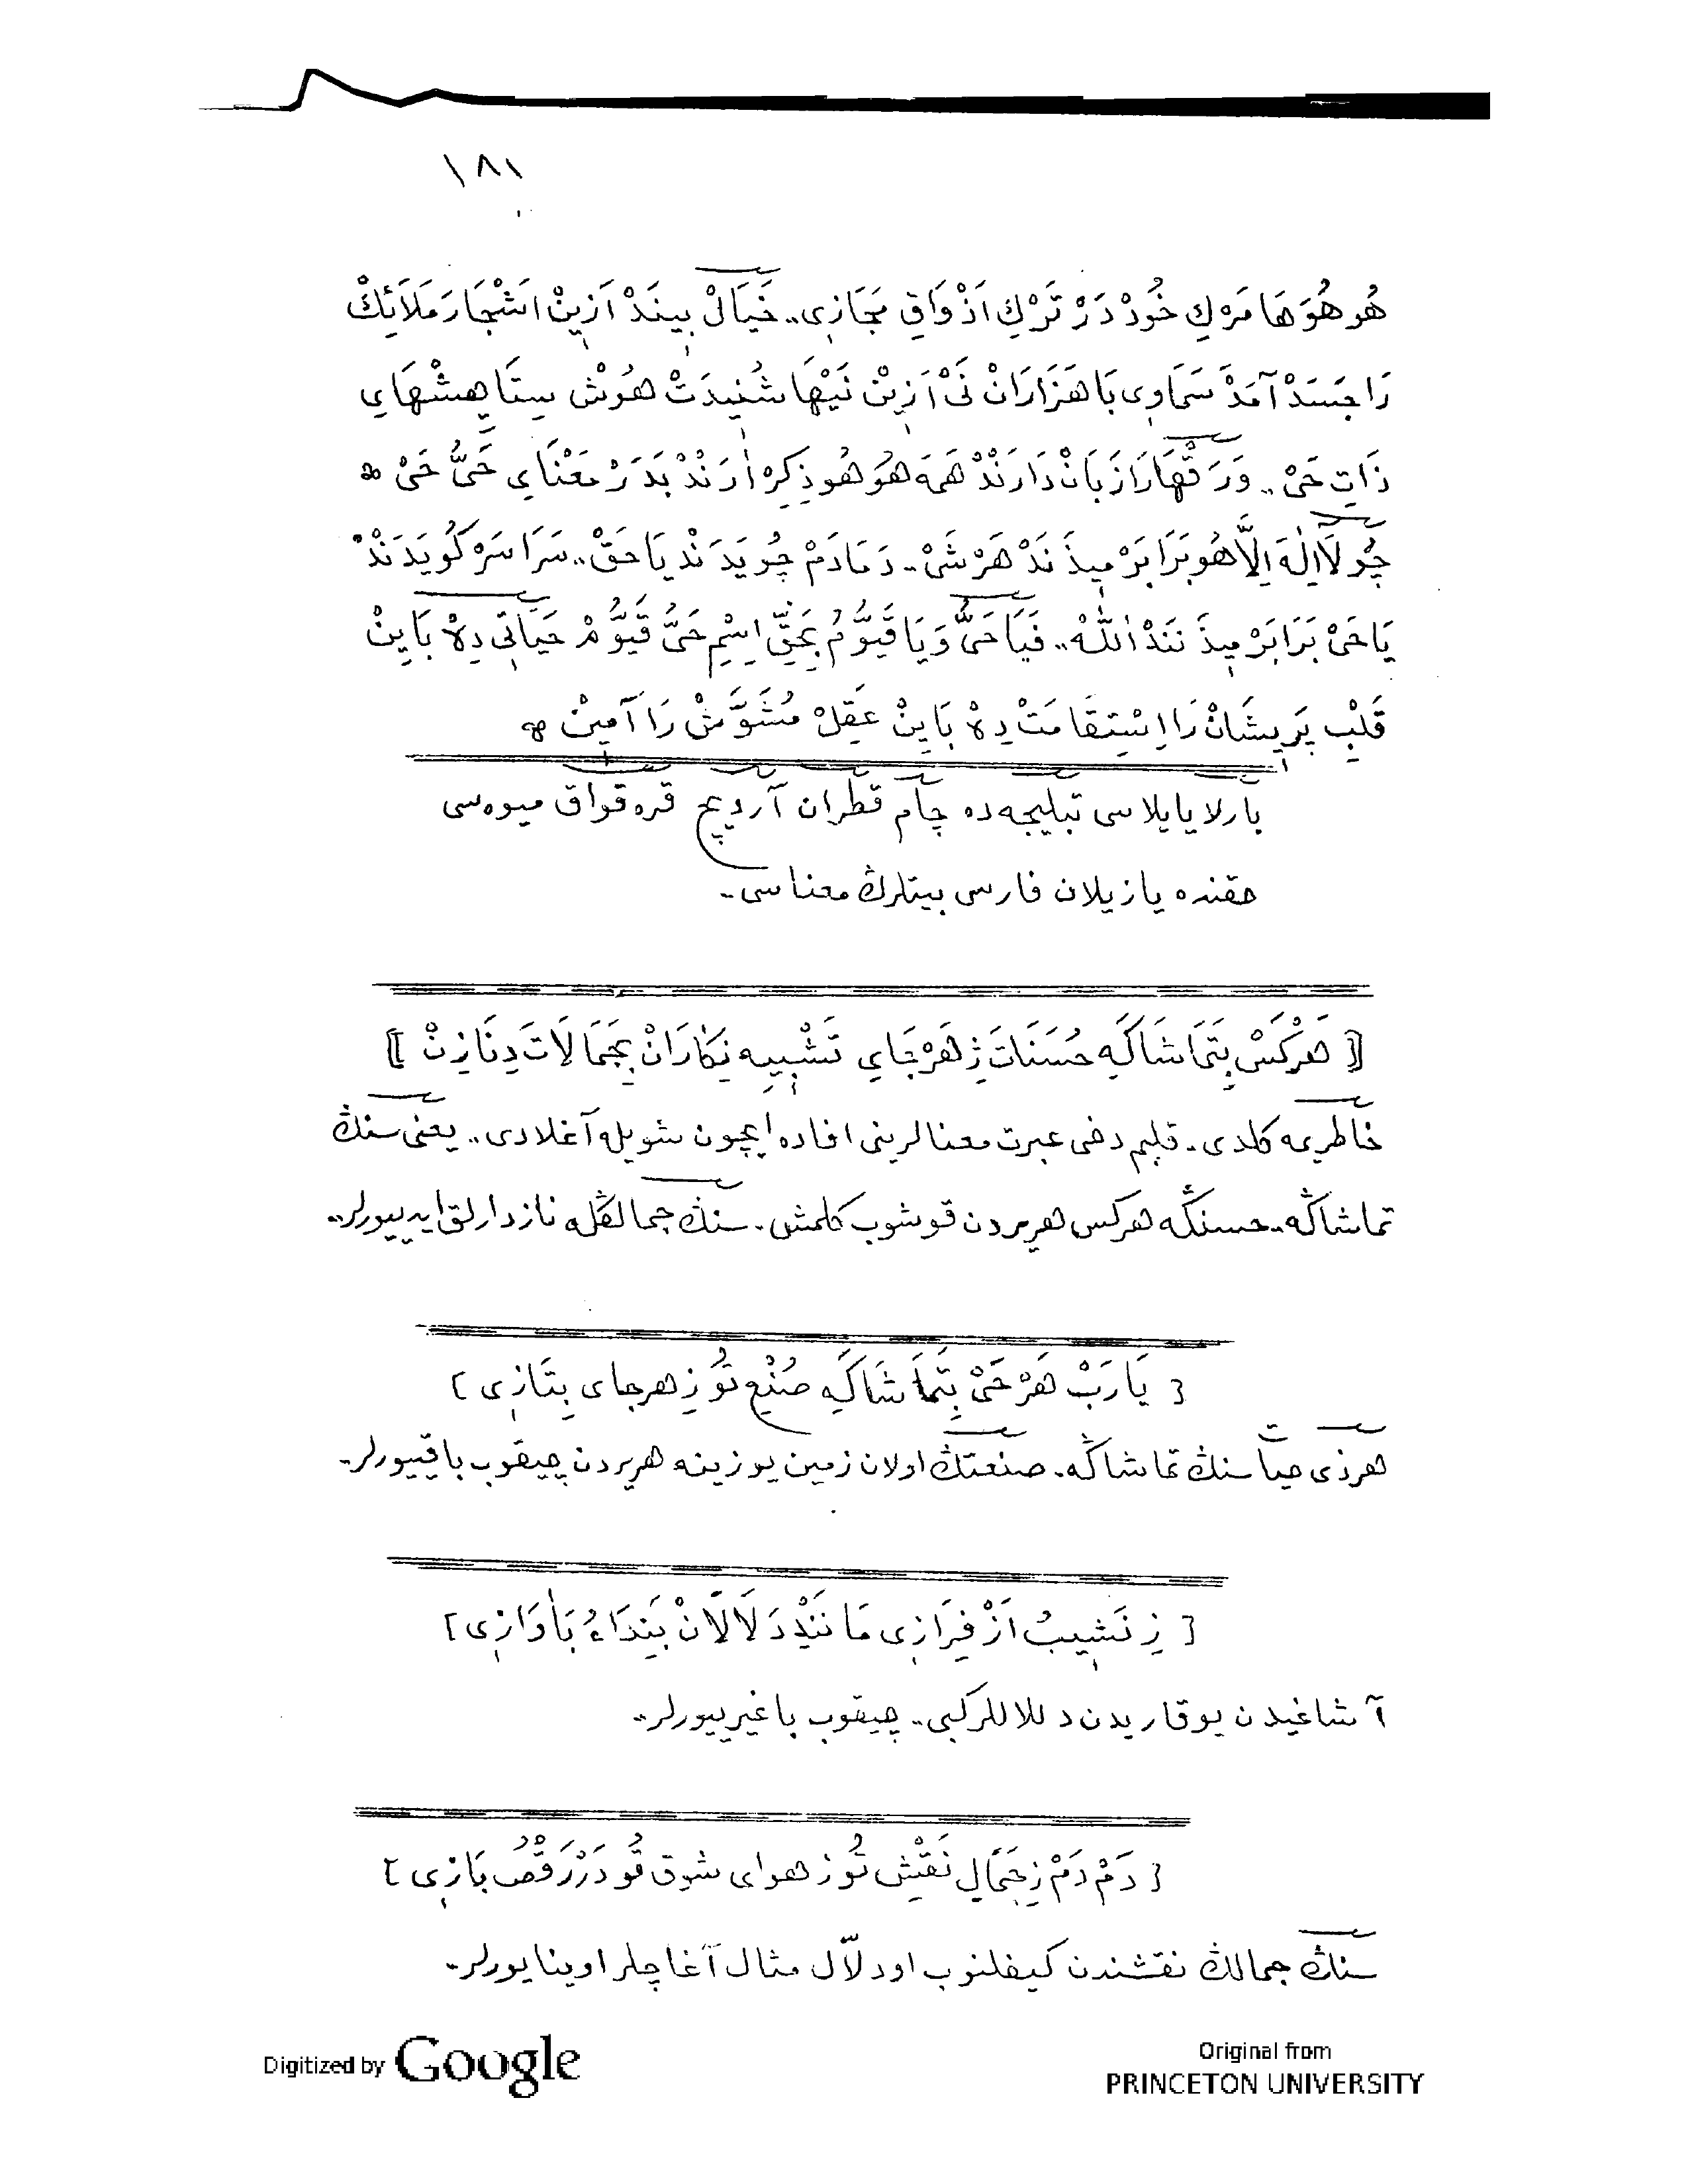 ١٨١
هُو هُوَ هَا مَرْكِ خُودْ دَرْ تَرْكِ اَذْوَاقِ مَجَازِى.. خَيَالْ بِينَدْ اَزِينْ اَشْجَارْ مَلَائِكْ
رَا جَسَدْ آمَدْ سَمَاوِى بَا هَزَارَانْ نَىْ اَزِينْ نَيْهَا شُنِيدَتْ هُوشْ سِتَايِشْهَاىِ
ذَاتِ حَىْ.. وَرَقْهَارَا زَبَانْ دَارَنْدْ هَمَه هُو هُو ذِكِرْ اٰرَنْدْ بَدَرْ مَعْنَاىِ حَىُّ حَىْ
چُو لَٓا اِلٰهَ اِلَّا هُو بَرَابَرْ مِيذَنَدْ هَرْ شَىْ.. دَمَادَمْ جُويَدَنْد يَا حَقْ.. سَرَاسَرْ كُويَدَنْدْ
يَا حَىْ بَرَابَرْ مِيذَنَنَدْ اَللّٰهْ.. فَيَا حَىُّ وَيَا قَيُّومُ بِحَقِّ اِسْمِ حَىُّ قَيُّومْ حَيَاتِى دِهْ بَاِينْ
قَلْبِ پَرِيشَانْ رَا اِسْتِقَامَتْ دِهْ بَاِينْ عَقِلْ مُشَوَّشْ رَا آمِينْ
بارلا يايلاسى تپليجه ده چام قطران آرديچ قره قواق ميوه سى
حقنده يازيلان فارسى بيتلرڭ معناسى..
[ هَرْكَسْ بِتَمَاشَاكَهِ حُسْنَاتَ زِهَرْ جَاىِ تَشْبِيهِ نِكَارَانْ بِجَمَالَاتَ دِنَازِنْ ]
خاطريمه كلدى. قلبم دخى عبرت معنالرينى افاده ايچون شويله آغلادى.. يعنى سنڭ
تماشاڭه.. حسنڭه هركس هر يردن قوشوب كلمش. سنڭ جمالڭله نازدارلق ايدييورلر..
[ يَارَبْ هَرْ حَىْ بِتَمَاشَاكَهِ صُنْعِ تُو زِهرجاى بِتَازِى ]
هرذى حيا سنڭ تماشاڭه. صنعتڭ اولان زمين يوزينه هر يردن چيقوب باقييورلر..
[ زِ نَشِيبُ اَزْ فِرَازِى مَانَنْدِ دَلَالَانْ بَنِدَاءُ بَاٰوَازِى ]
آشاغيدن يوقاريدن دلاللر كبى.. چيقوب باغيرييورلر..
[ دَمْ دَمْ زِجَمَالِ نَقْشِ تُو زهواى شوق تُو دَرْرَقْصُ بَازِى ]
سنڭ جمالڭ نقشندن كيفلنوب او دلاّل مثال آغاچلر اوينايورلر..
Digitized by Google
Original from
PRINCETON UNIVERSITY